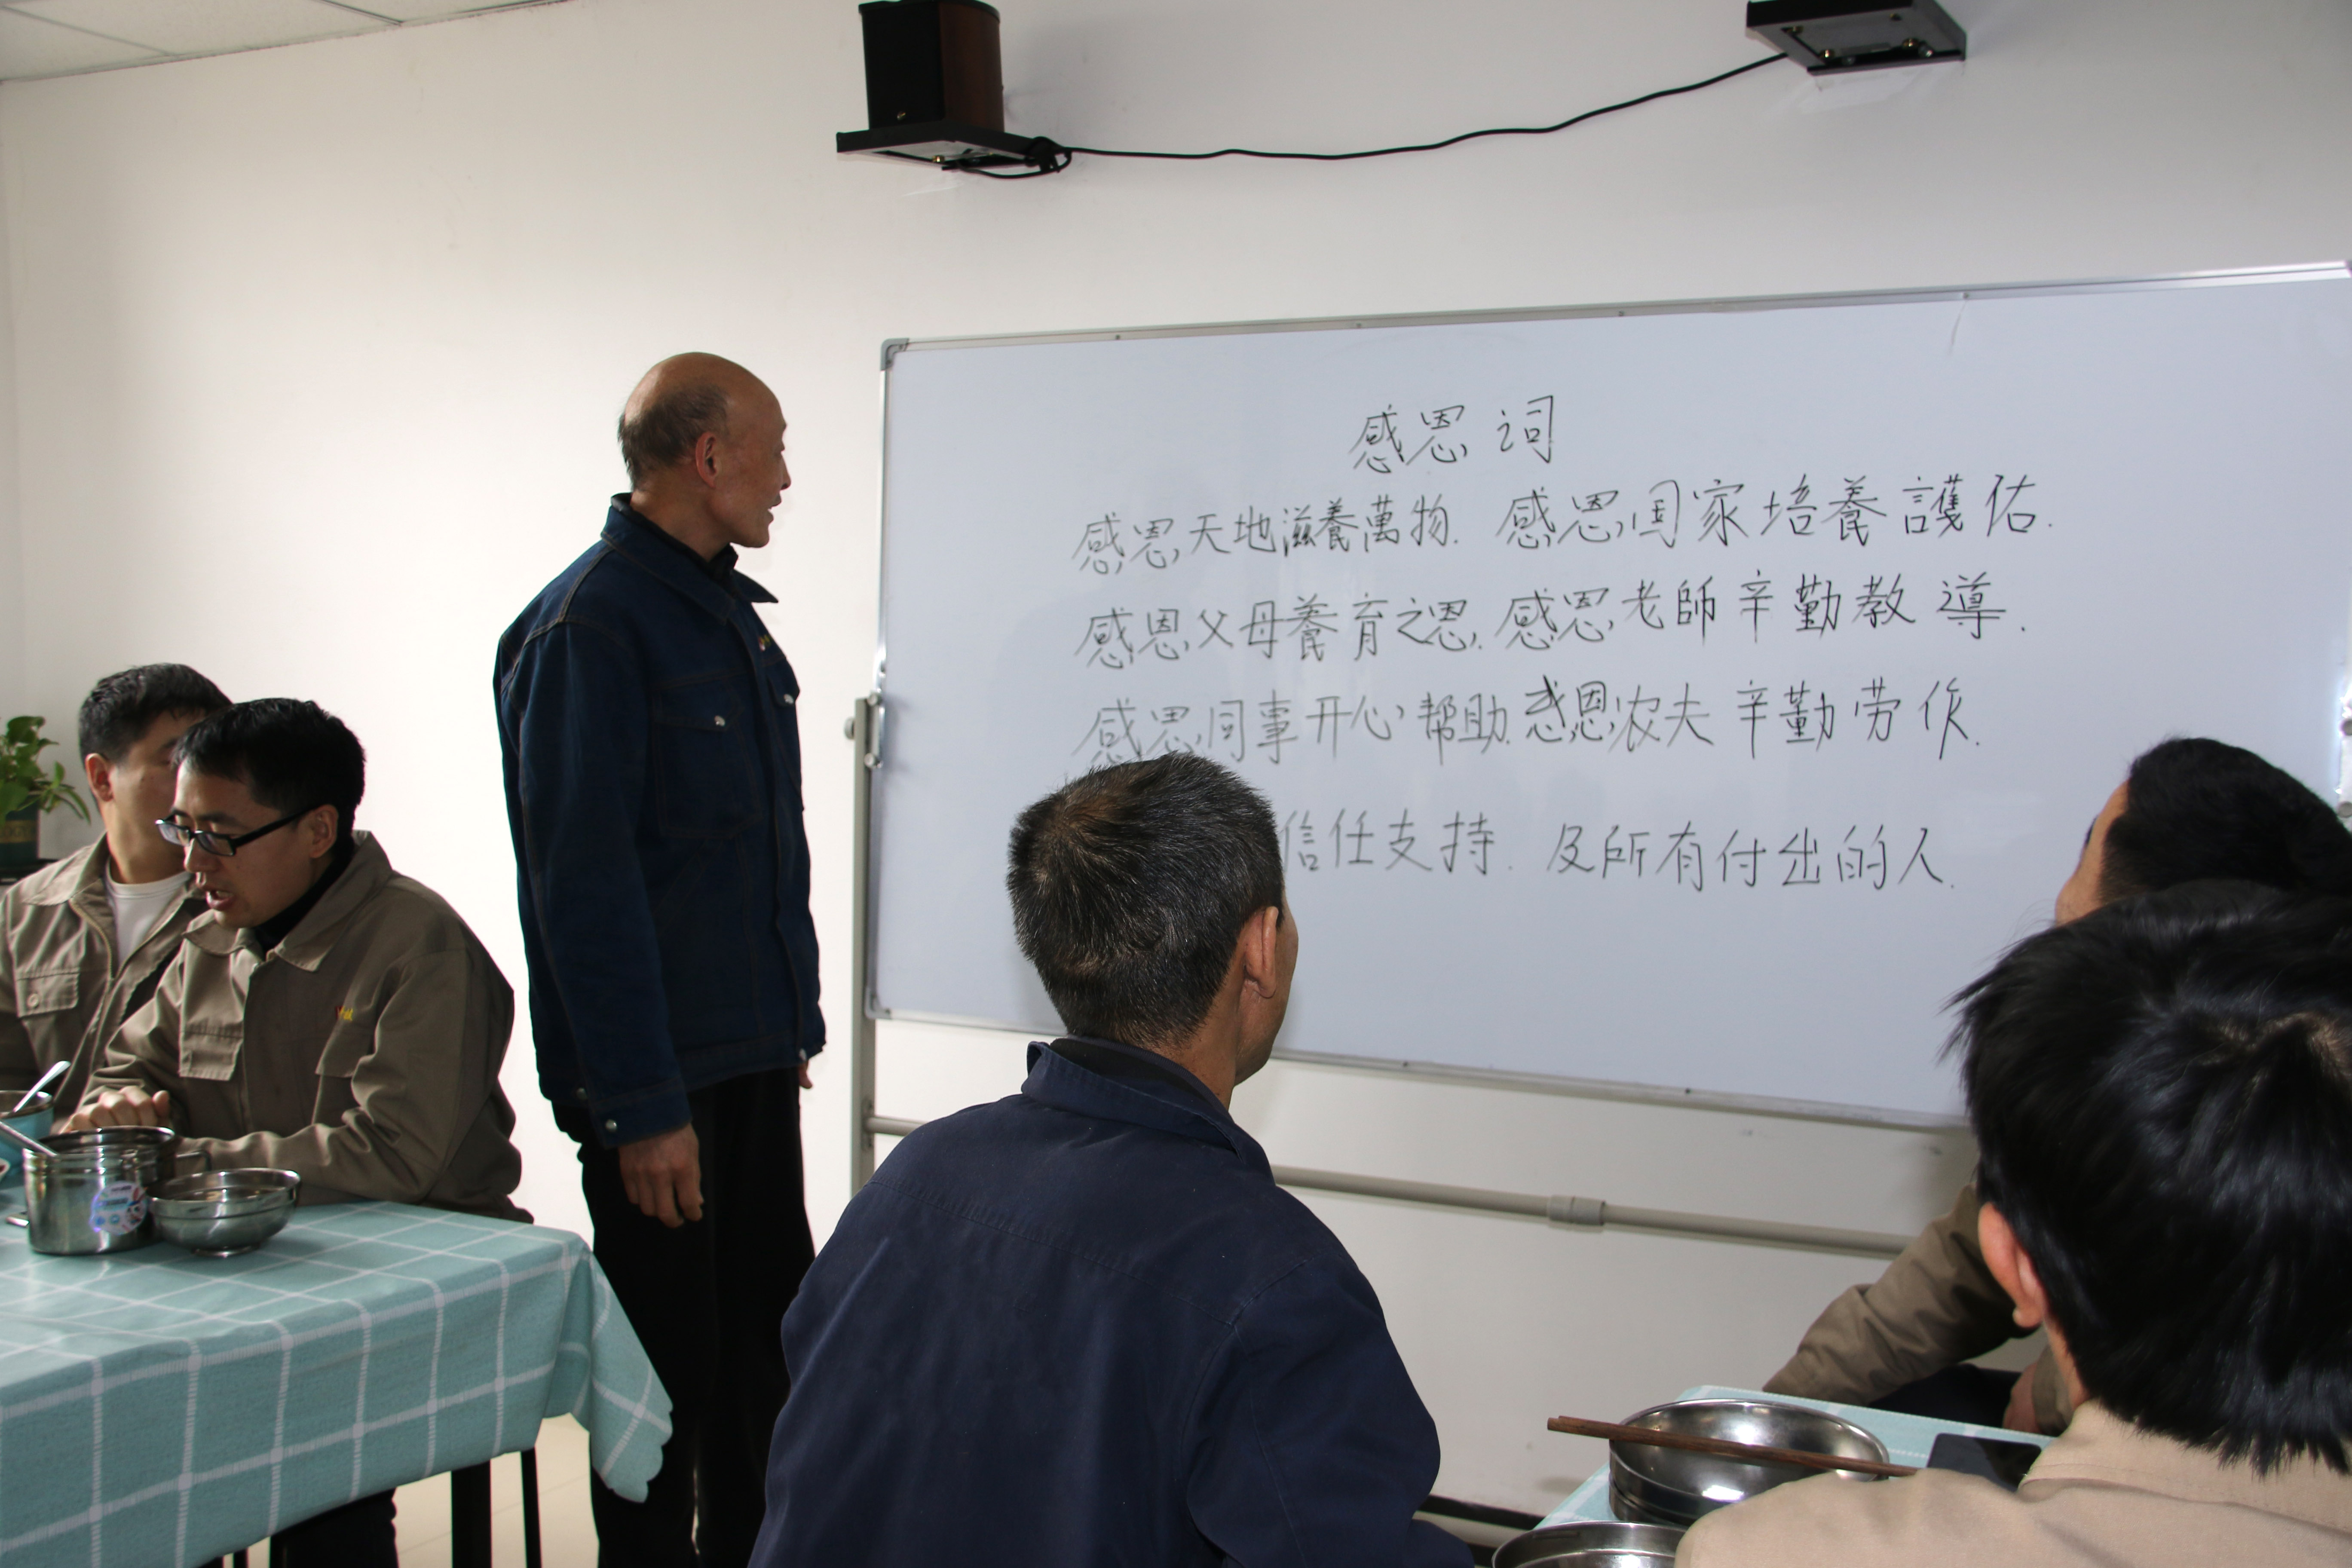 感恩词
感恩天地滋養萬物.感恩国家培養護佑.
感恩父母養育之恩.感恩老師辛勤教導.
感恩同事开心帮助.感恩农夫辛勤劳作.
信任支持.及所有付出的人.